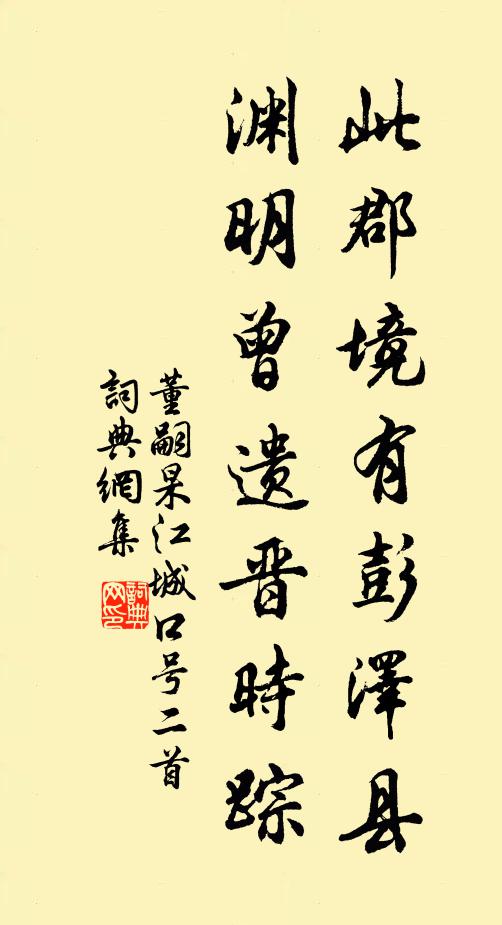 此郡境有彭澤县
渊明曾遗晋時踪
董嗣杲江城口号二首
詞典網集
詞典網印